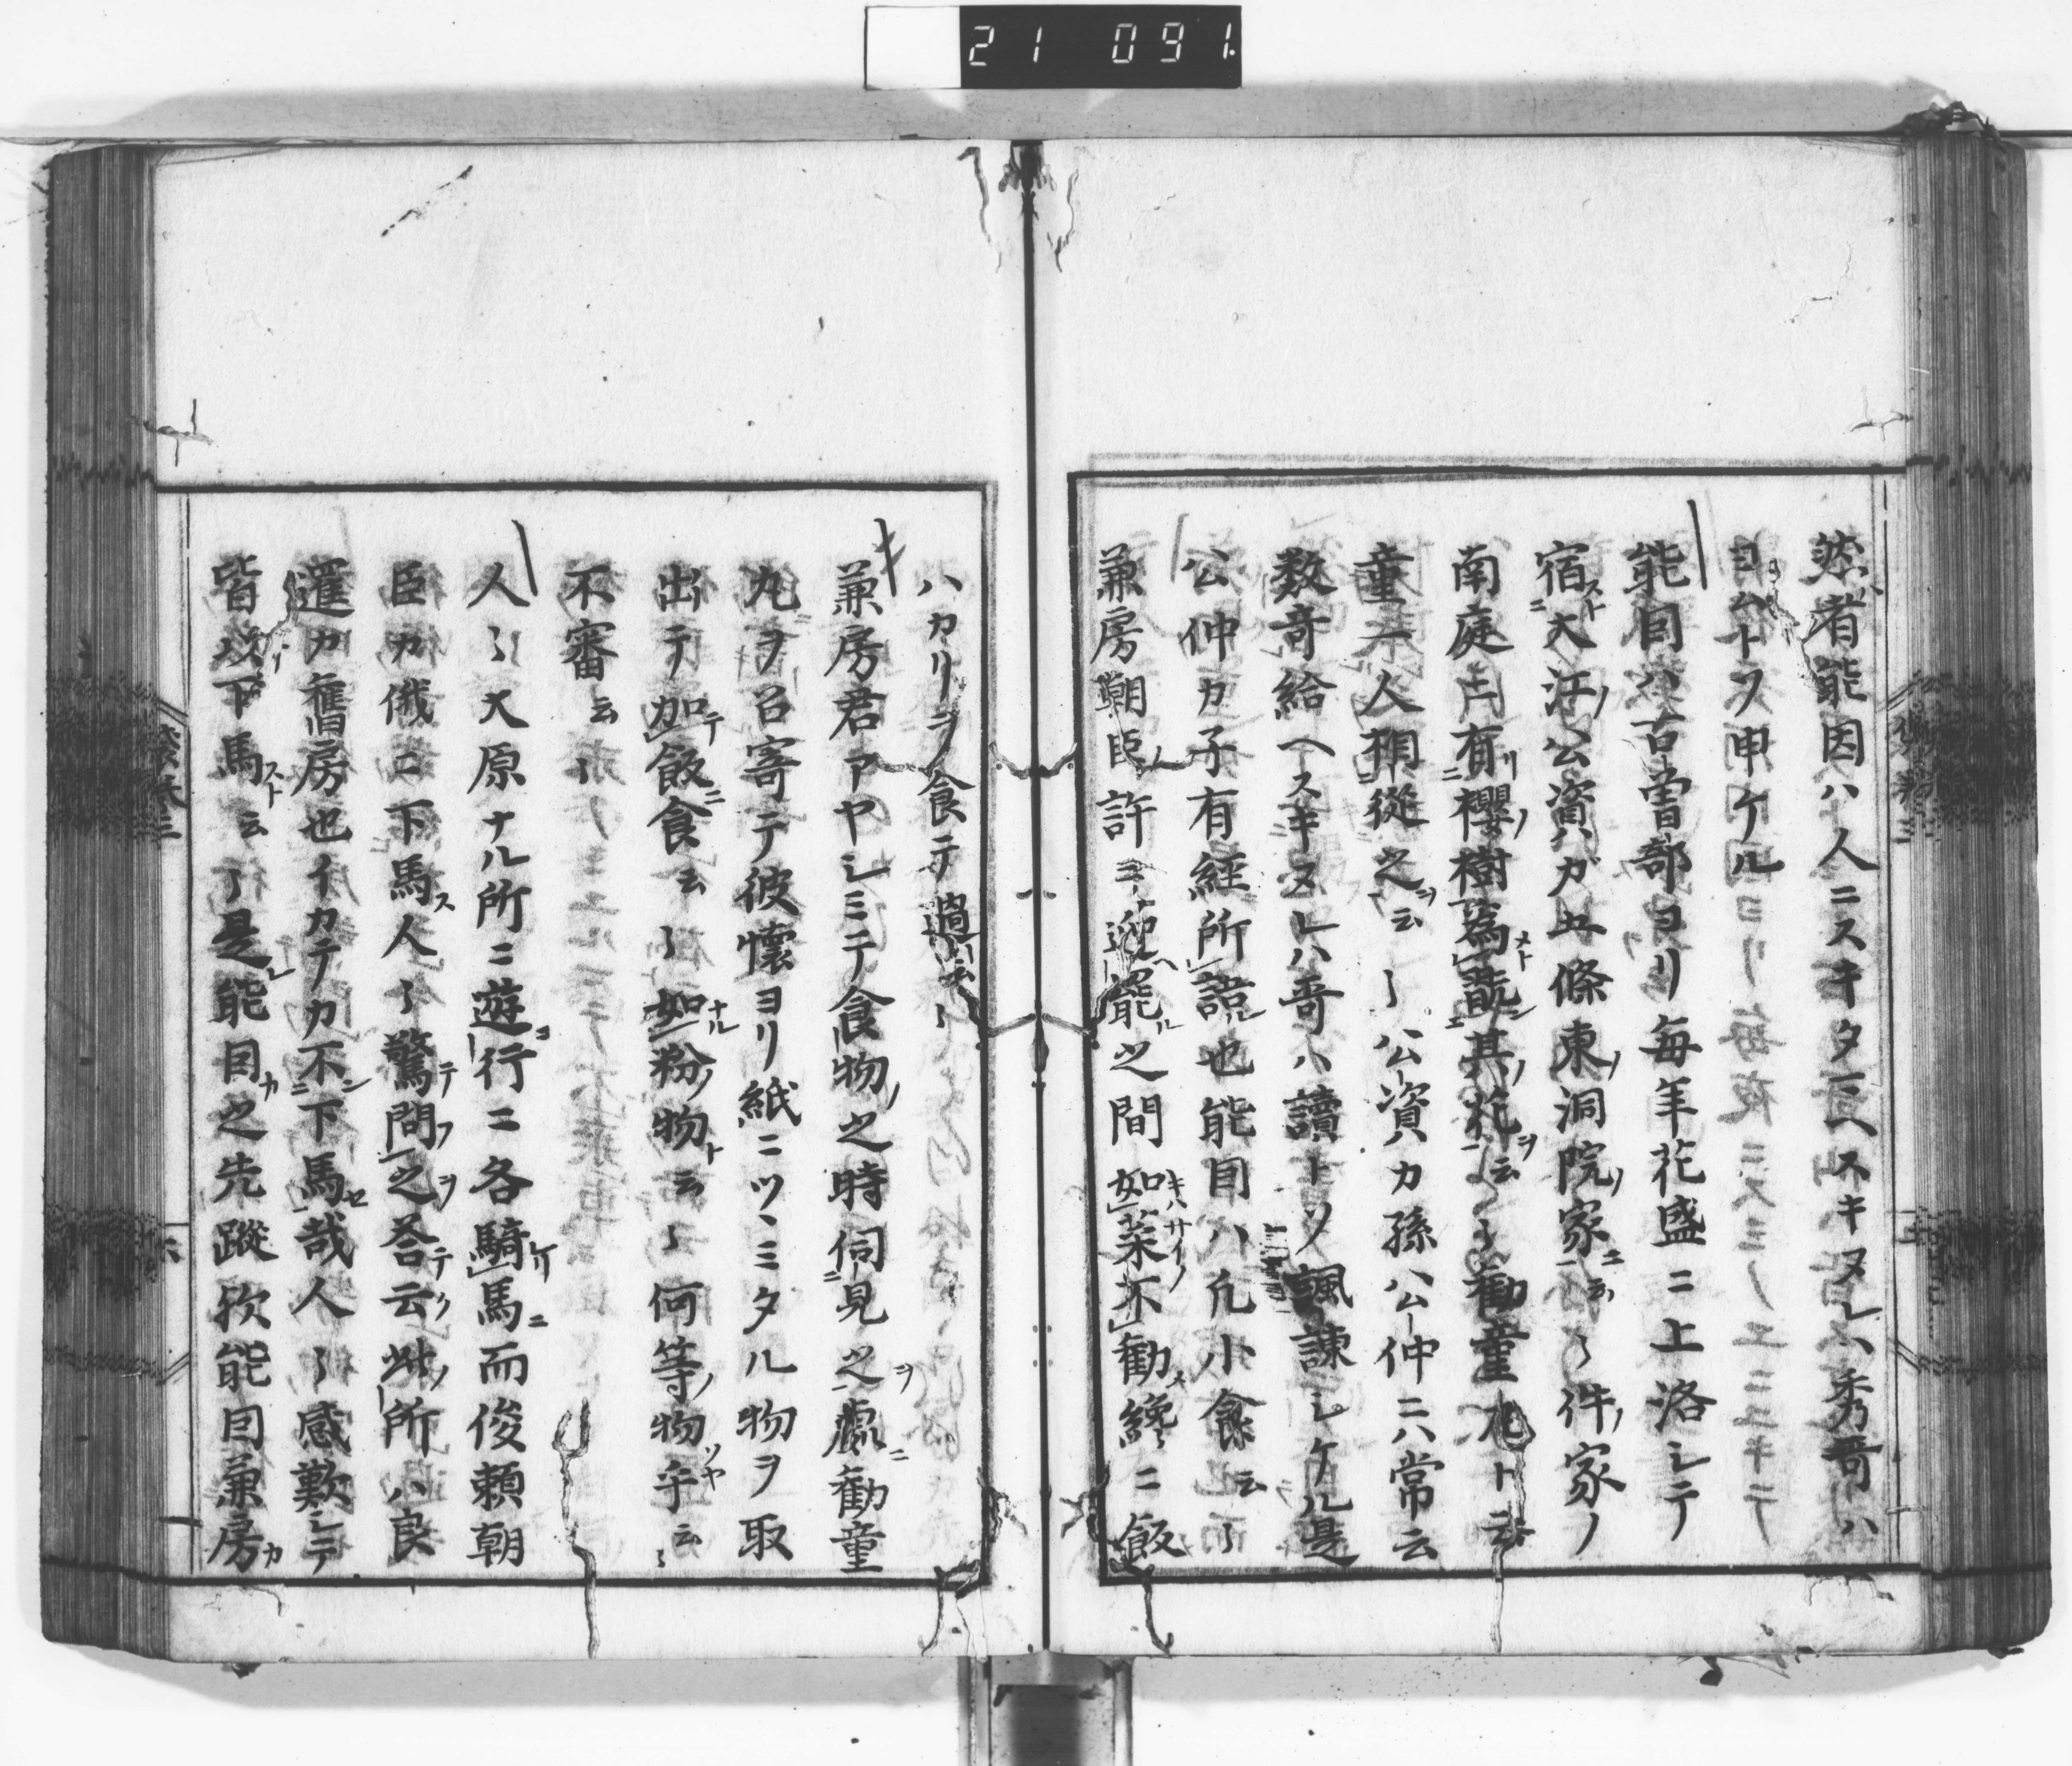 21 091
然者能因ハ人ニスキタマヘスキヌレハ秀哥ハ
ヨムトソ申ケル
能因ハ古曽部ヨリ毎年花盛ニ上洛シテ
宿大江公資ガ五條東洞院家云〻件家ノ
南庭有櫻樹為翫其花云〻勸童丸ト云
童一人相從之云〻公資カ孫公仲ニハ常云
数奇給ヘスキヌレハ哥ハ讀トソ諷諫シケル是
公仲カ子有経所語也能因ハ凢小食云〻
兼房朝臣許ヨリ迎罷之間如菜不勸纔ニ飯
ハカリヲ食テ過云〻
兼房君アヤシミテ食物之時伺見之處勸童
丸ヲ召寄テ彼懐ヨリ紙ニツヽミタル物ヲ取
出テ加飯食云〻如粉物云〻何等物乎云〻
不審云〻
人〻大原ナル所ニ遊行ニ各騎馬而俊頼朝
臣カ俄ニ下馬人〻驚問之答云此所ハ良
暹カ舊房也イカテカ不下馬哉人〻感歎シテ
皆以下馬云〻是能因之先蹤欤能因兼房